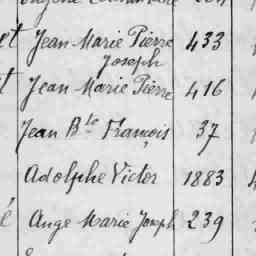 et Jean Marie Pierre 433
Joseph
Jean Marie Pierre 416
Jean Bte François 37
Adolphe Victor 1883
Ange Marie Joseph 239